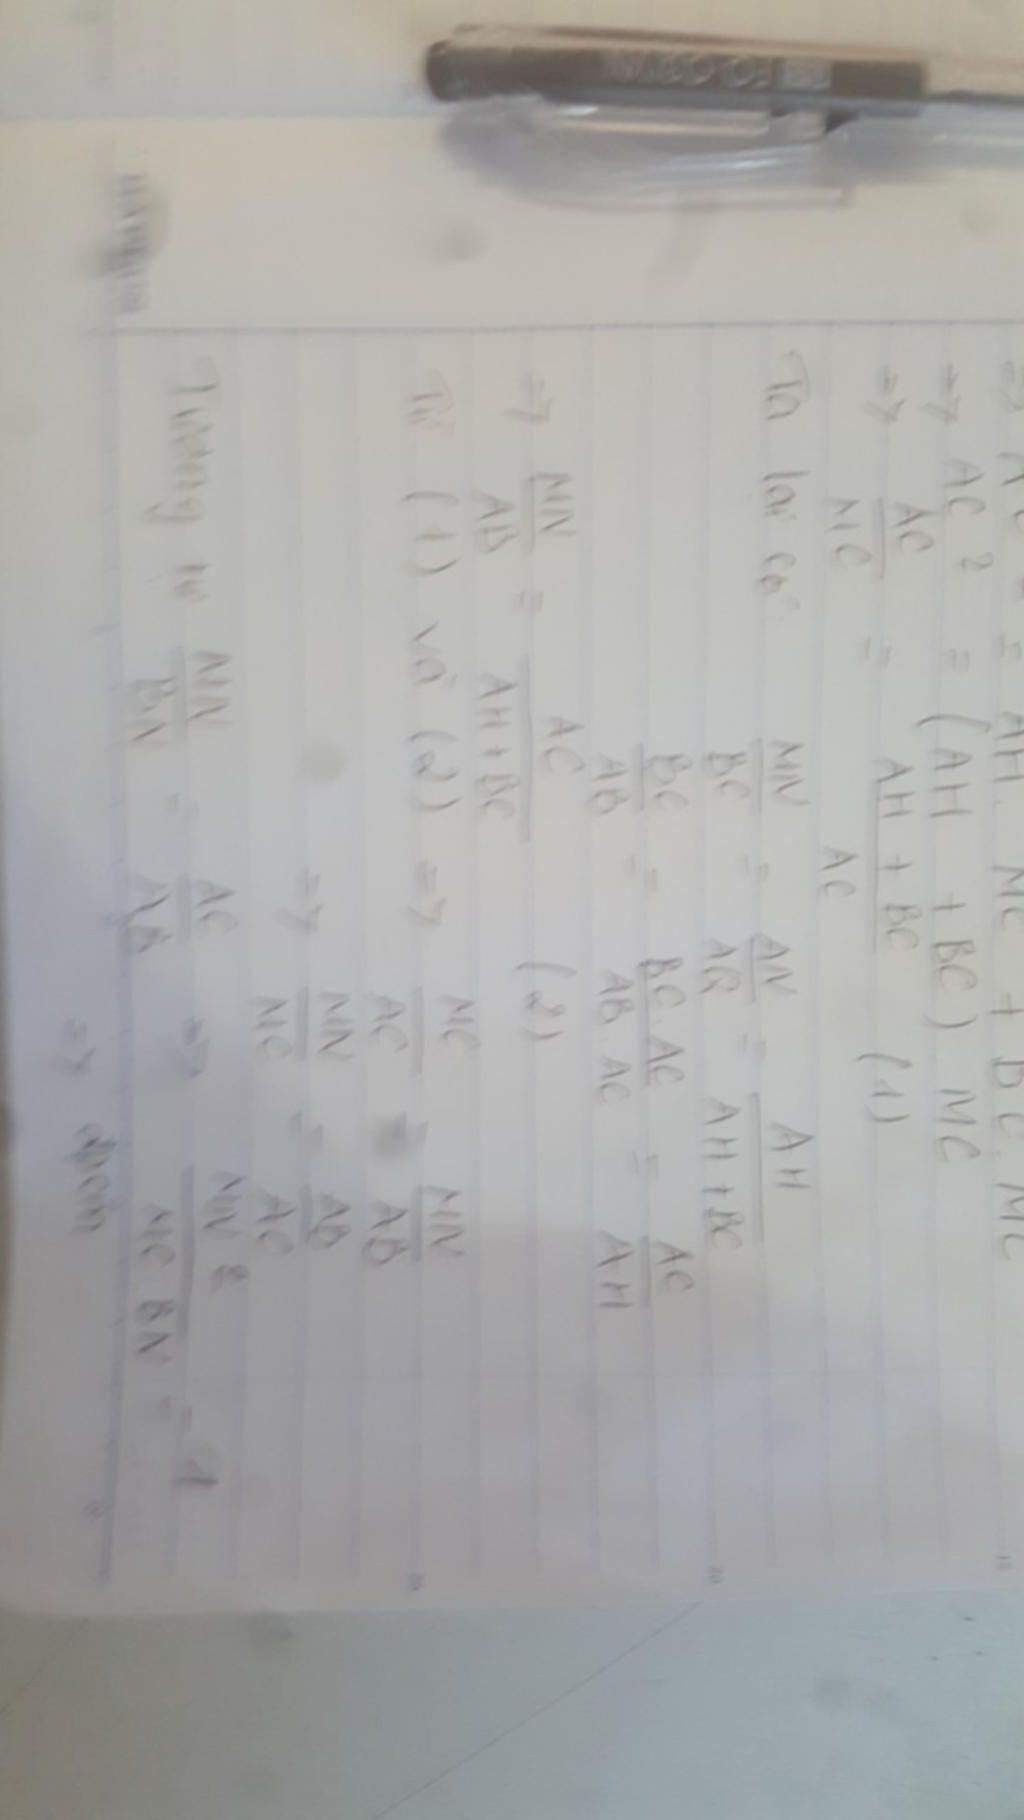 => AC² = AH. MC + BC. MC
=> AC² = (AH + BC) MC
=> AC/MC = (AH + BC)/AC (1)
Ta lại có MN/BC = AN/AQ = AH/(AH + BC)
BC/AB = BC.AC/AB.AC = AC/AH
=> MN/AB = AC/(AH + BC) (2)
Từ (1) và (2) => MC/AC = MN/AB
=> MN/MC = AB/AC
Tương tự MN/BN = AC/AB => MN²/MC BN = 1
=> đpcm